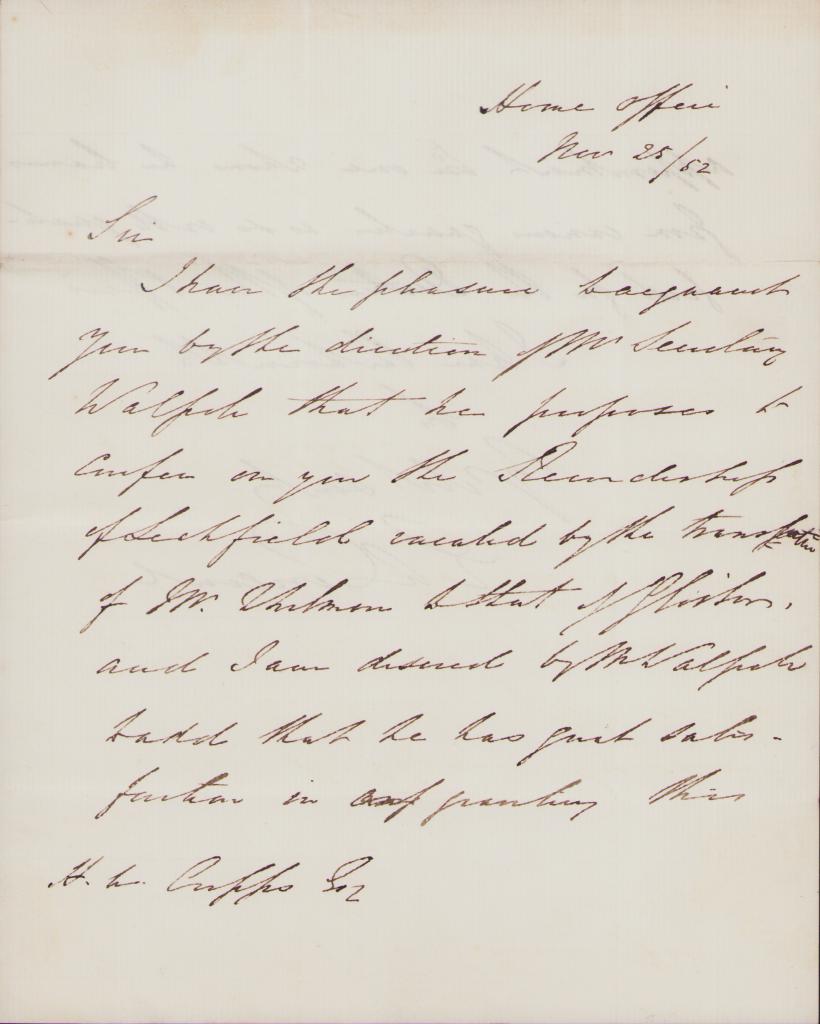 Home Office
Nov 25/52
Sir
I have the pleasure to acquaint
you by the direction of Mr Secretary
Walpole that he proposes to
confer on you the Recordership
of Lichfield vacated by the
of Mr. to that of
and I am desired by Mr Walpole
to add that he has great satis-
faction in granting this
H. W. Cripps Esq